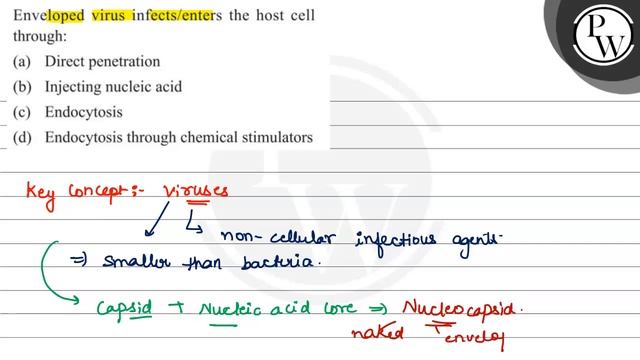 Enveloped virus infects/enters the host cell
through:
(a) Direct penetration
(b) Injecting nucleic acid
(c) Endocytosis
(d) Endocytosis through chemical stimulators
PW
Key Concept:- Viruses
↳ non-cellular infectious agents.
⇒ smaller than bacteria.
Capsid + Nucleic acid core ⇒ Nucleocapsid.
naked envelo